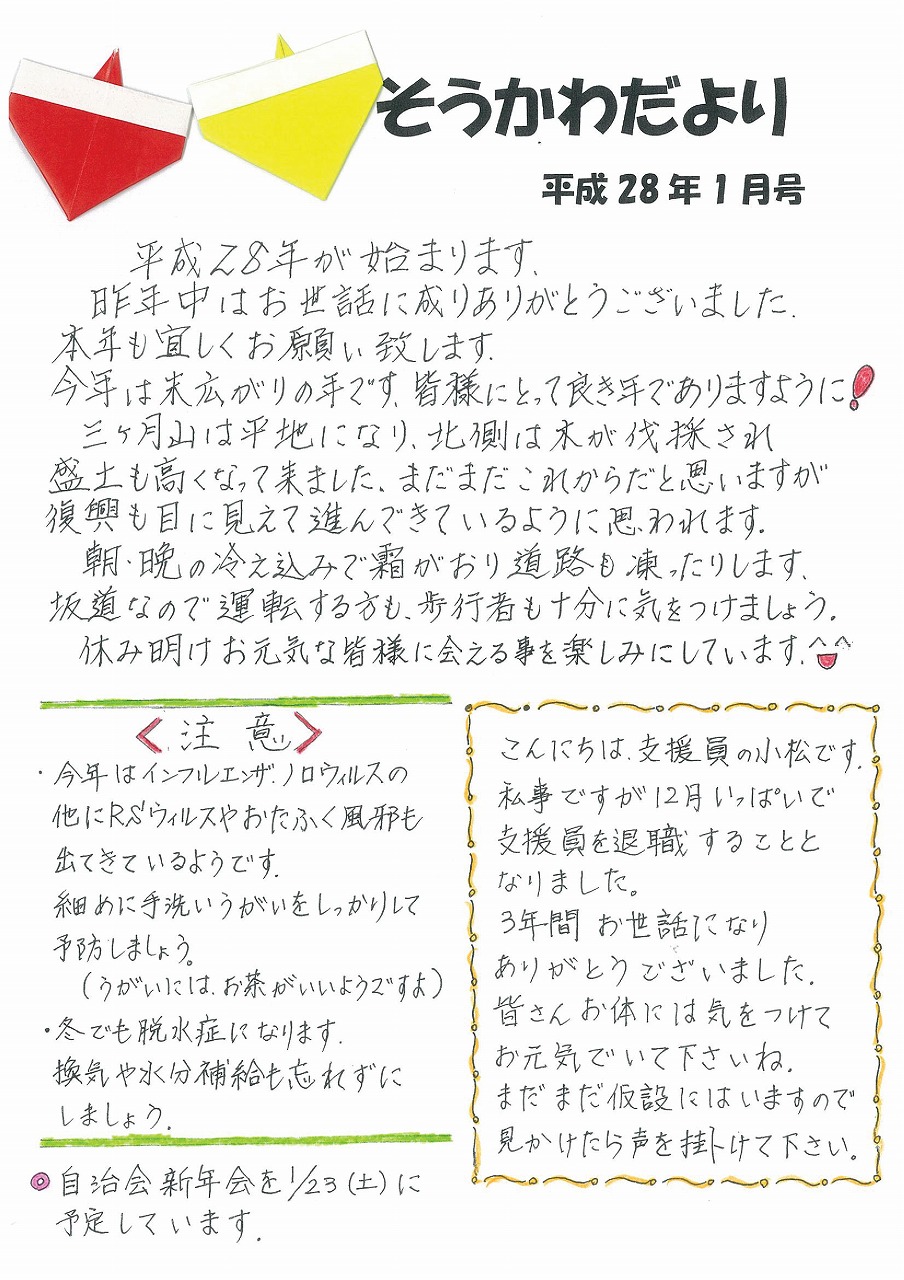 そうかわだより
平成28年1月号
平成28年が始まります.
昨年中はお世話に成りありがとうございました.
本年も宜しくお願い致します.
今年は末広がりの年です.皆様にとって良き年でありますように!
三ヶ月山は平地になり、北側は木が伐採され
盛土も高くなって来ました、まだまだこれからだと思いますが
復興も目に見えて進んできているように思われます.
朝・晩の冷え込みで霜がおり道路も凍ったりします、
坂道なので運転する方も、歩行者も十分に気をつけましょう.
休み明けお元気な皆様に会える事を楽しみにしています.^^
<注意>
・今年はインフルエンザ、ノロウィルスの
他にRSウィルスやおたふく風邪も
出てきているようです.
細めに手洗いうがいをしっかりして
予防しましょう。
(うがいには、お茶がいいようですよ)
・冬でも脱水症になります.
換気や水分補給も忘れずに
しましょう.
◎自治会新年会を1/23(土)に
予定しています.
こんにちは、支援員の小松です.
私事ですが12月いっぱいで
支援員を退職することと
なりました。
3年間 お世話になり
ありがとうございました.
皆さんお体には気をつけて
お元気でいて下さいね.
まだまだ仮設にはいますので
見かけたら声を掛けて下さい。